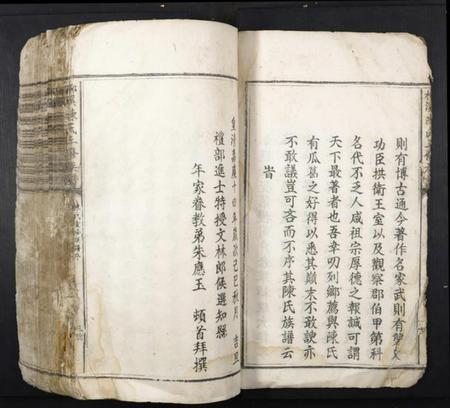 則有博古通今著作名家武則有
功臣拱衛王室以及觀察郡伯甲第科
名代不乏人咸祖宗厚德之報誠可謂
天下最著者也吾幸叨列鄉薦與陳氏
有瓜葛之好得以悉其顛末不敢諛亦
不敢議豈可吝而不序其陳氏族譜云
旹
皇清嘉慶十四年歲次己巳秋月 吉旦
禮部進士特授文林郎候選知縣
年家眷教弟朱應玉 頓首拜撰